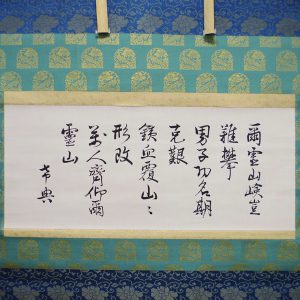 爾霊山嶮豈
難攀
男子功名期
克艱
鉄血覆山々
形改
萬人齊仰爾
霊山
希典